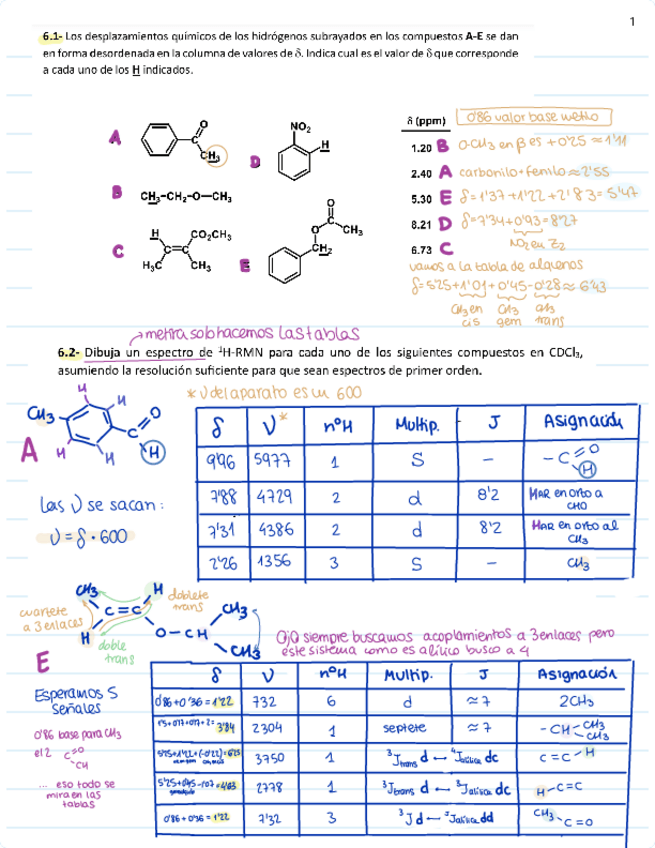 1
6.1- Los desplazamientos químicos de los hidrógenos subrayados en los compuestos A-E se dan
en forma desordenada en la columna de valores de δ. Indica cual es el valor de δ que corresponde
a cada uno de los H indicados.
δ (ppm) 0'86 valor base metilo
A O CH3
D NO2 H
1.20 B O-CH3 en β es +0'25 ≈ 1'11
2.40 A carbonilo + fenilo ≈ 2'55
B CH3-CH2-O-CH3
5.30 E δ = 1'37 + 1'22 + 2'83 = 5'42
8.21 D δ = 7'34 + 0'93 = 8'27
NO2 en Z2
C H CO2CH3 H3C CH3
E O O CH3 CH2
6.73 C
vamos a la tabla de alquenos
δ = 5'25 + 1'01 + 0'45 - 0'28 ≈ 6'43
CH3 gem trans
cis
metira solo hacemos las tablas
6.2- Dibuja un espectro de ¹H-RMN para cada uno de los siguientes compuestos en CDCl3,
asumiendo la resolución suficiente para que sean espectros de primer orden.
* ν del aparato es un 600
A CH3 H H H H C O H
δ ν* nºH Multip. J Asignación
9'96 5977 1 S - -C=O H
7'88 4729 2 d 8'2 HAR en orto a CHO
7'31 4386 2 d 8'2 HAR en orto al CH3
2'26 1356 3 S - CH3
Las ν se sacan:
ν = δ · 600
CH3 H doblete trans
cuartete a 3 enlaces
C=C CH3
H O-CH CH3
doble trans
E
Ojo siempre buscamos acoplamientos a 3 enlaces pero
este sistema como es alílico busco a 4
δ ν nºH Multip. J Asignación
Esperamos 5 señales
0'86+0'36 = 1'22 732 6 d ≈7 2CH3
3'84 2304 1 septete ≈7 -CH-CH3 CH3
0'86 base para CH3
el 2 C=O CH
3750 1 ³Jtrans d C=C-H
... eso todo se
mira en las
tablas
2778 1 ³Jtrans d H-C=C
0'86+0'36 = 1'22 732 3 ³J d CH3 C=O